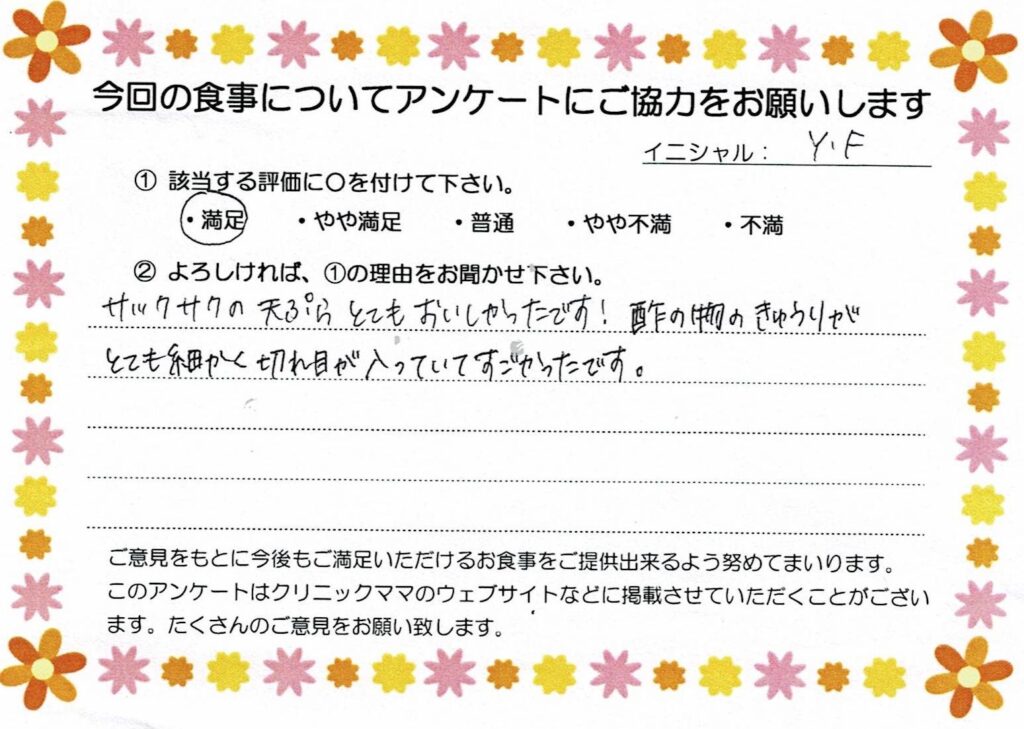 今回の食事についてアンケートにご協力をお願いします
イニシャル： Y.F
① 該当する評価に〇を付けて下さい。
・満足 ・やや満足 ・普通 ・やや不満 ・不満
② よろしければ、①の理由をお聞かせ下さい。
サックサクの天ぷらとてもおいしかったです！酢の物のきゅうりが
とても細かく切れ目が入っていてすごかったです。
ご意見をもとに今後もご満足いただけるお食事をご提供出来るよう努めてまいります。
このアンケートはクリニックママのウェブサイトなどに掲載させていただくことがござい
ます。たくさんのご意見をお願い致します。